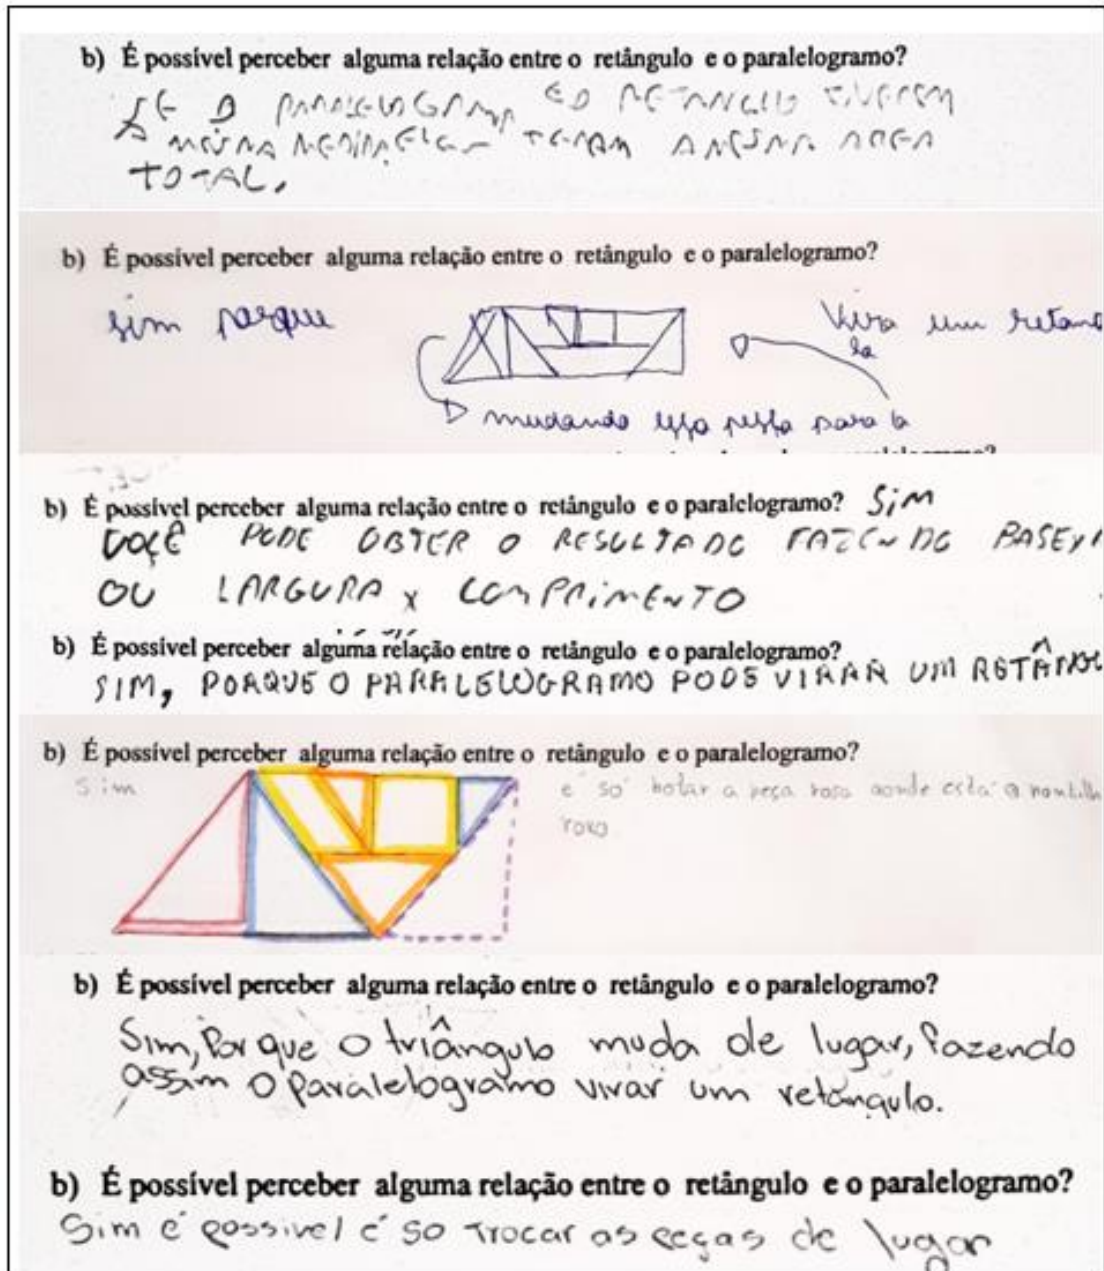 b) É possível perceber alguma relação entre o retângulo e o paralelogramo?
SE O PARALELOGRAMA E O RETANGULO TIVEREM
A MESMA MEDIDA ELES TERAM A MESMA AREA
TOTAL.
b) É possível perceber alguma relação entre o retângulo e o paralelogramo?
sim porque
Vira um retang
la
mudando essa pessa para la
b) É possível perceber alguma relação entre o retângulo e o paralelogramo? Sim
VOCÊ PODE OBTER O RESULTADO FAZENDO BASEx
OU LARGURA x COMPRIMENTO
b) É possível perceber alguma relação entre o retângulo e o paralelogramo?
SIM, PORQUE O PARALELOGRAMO PODE VIRAR UM RETÂNGUL
b) É possível perceber alguma relação entre o retângulo e o paralelogramo?
Sim
é só botar a peça rosa aonde está a
roxo
b) É possível perceber alguma relação entre o retângulo e o paralelogramo?
Sim, Por que o triângulo muda de lugar, fazendo
assim o paralelogramo virar um retângulo.
b) É possível perceber alguma relação entre o retângulo e o paralelogramo?
Sim é possivel é so trocar as peças de lugar